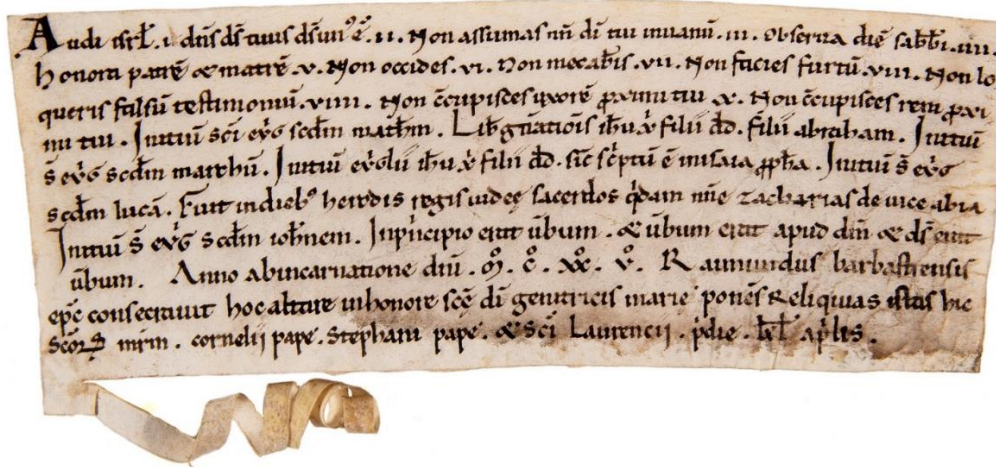 Audi isrl̄. i. dn̄s ds̄ tuus ds̄ un᷒ ē. ii. Non assumas nm̄ di tui inuanū. iii. obserua diē sabb̄i. iiii.
honora patrē & matrē. v. Non occides. vi. Non mecab̄is. vii. Non facies furtū. viii. Non lo
queris falsū testimoniū. viiii. Non c̄cupisces uxorē ꝓximi tui. x. Non c̄cupisces rem ꝓxi
mi tui. Initiū sc̄i euḡ scd̄m math̄m. Lib̄ gn̄ationis ih̄u xp̄i filii dd̄. filii abraham. Initiū
s̄ euḡ scd̄m marchū. Initiū euḡlii ih̄u xp̄i filii dd̄. sic sc̄ptū ē inisaia ꝓph̄a. Initiū s̄ euḡ
scd̄m lucā. Fuit indieb᷒ herodis regis iudeę sacerdos q̇dam nn̄e zacharias de uice abia
Initiū s̄ euḡ scd̄m ioh̄nem. Inp̄ncipio erat ūbum. & ūbum erat apud dm̄ & ds̄ erat
ūbum. Anno abincarnatione dn̄i. m̊. c̊. xx̊. v̊. Raimundus barbastrensis
epc̄ consecrauit hoc altare inhonore scē di genitricis marie ponēs Reliquias istas hic
scōꝝ mr̄m. cornelii pape. Stephani pape. & sc̄i Laurencii. p̄die. kl̄. ap̄lis.